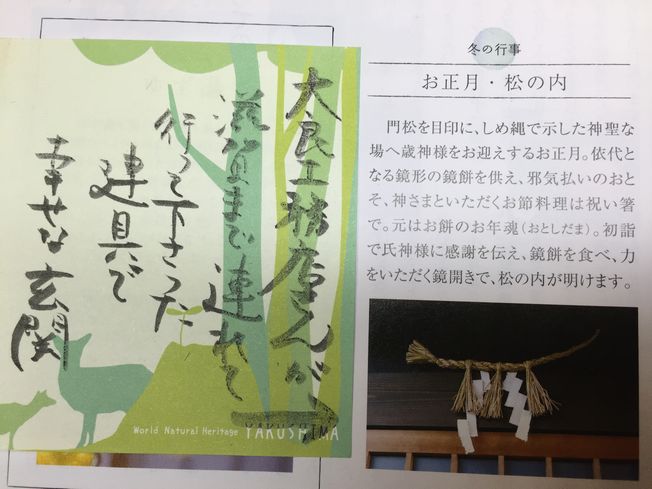 大良工務店さんが、
滋賀まで連れて
行って下さった
建具で
幸せな玄関
World Natural Heritage YAKUSHIMA
冬の行事
お正月・松の内
門松を目印に、しめ縄で示した神聖な
場へ歳神様をお迎えするお正月。依代と
なる鏡形の鏡餅を供え、邪気払いのおと
そ、神さまといただくお節料理は祝い箸
で。元はお餅のお年魂(おとしだま)。初詣
で氏神様に感謝を伝え、鏡餅を食べ、力
をいただく鏡開きで、松の内が明けます。